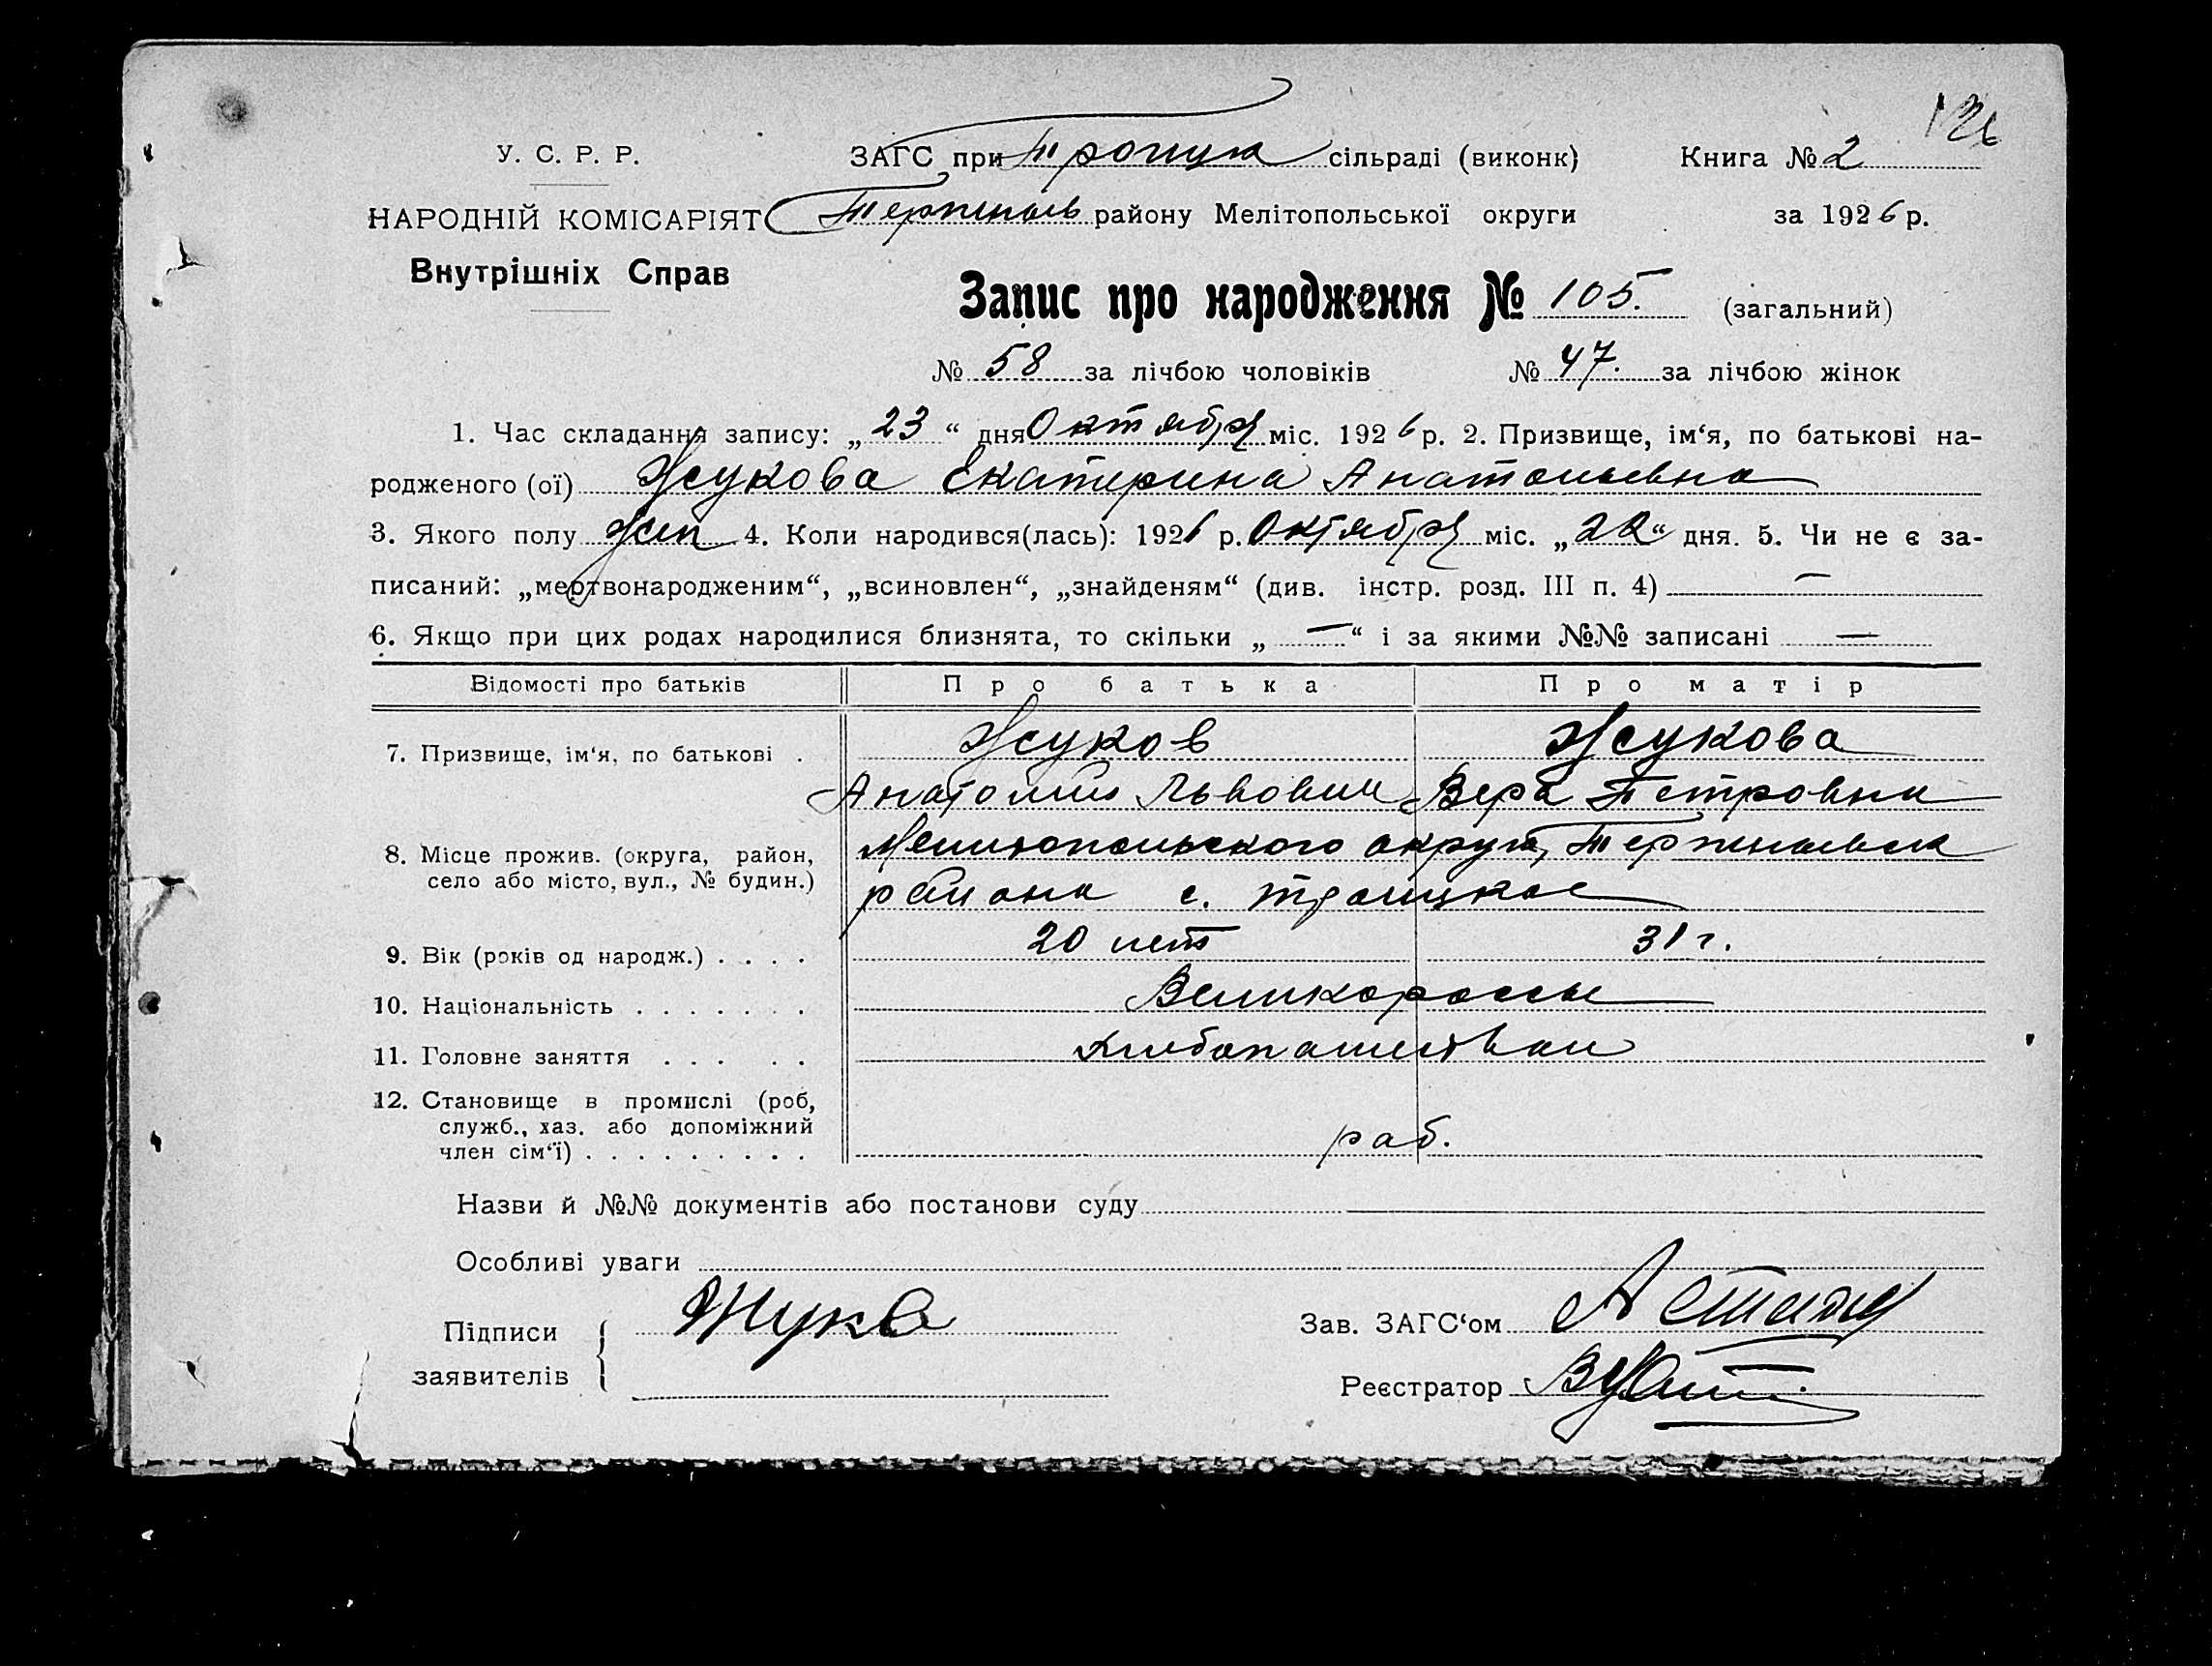 126
У. С. Р. Р. ЗАГС при Троицк сільраді (виконк) Книга № 2
НАРОДНІЙ КОМІСАРІЯТ Терпеньев району Мелітопольської округи за 1926 р.
Внутрішніх Справ
Запис про народження № 105. (загальний)
№ 58 за лічбою чоловіків № 47. за лічбою жінок
1. Час складання запису: „23“ дня Октября міс. 1926 р. 2. Призвище, ім‘я, по батькові на-
родженого (ої) Жукова Екатерина Анатольевна
3. Якого полу жен 4. Коли народився(лась): 1926 р. Октября міс. „22“ дня. 5. Чи не є за-
писаний: „мертвонародженим“, „всиновлен“, „знайденям“ (див. інстр. розд. III п. 4) —
6. Якщо при цих родах народилися близнята, то скільки „—“ і за якими №№ записані —
Відомості про батьків Про батька Про матір
7. Призвище, ім‘я, по батькові . Жуков Жукова
Анатолий Львович Вера Петровна
8. Місце прожив. (округа, район, Мелитопольского округа, Терпеньевск
село або місто, вул., № будин.) района с. Троицкое
9. Вік (років од народж.) . . . . 20 лет 31 г.
10. Національність . . . . . . . Великороссы
11. Головне заняття . . . . . Хлебопашество
12. Становище в промислі (роб,
служб., хаз. або допоміжний
член сім‘ї) . . . . . . . . . раб.
Назви й №№ документів або постанови суду
Особливі уваги
Підписи Жуков Зав. ЗАГС‘ом
заявителів Реєстратор